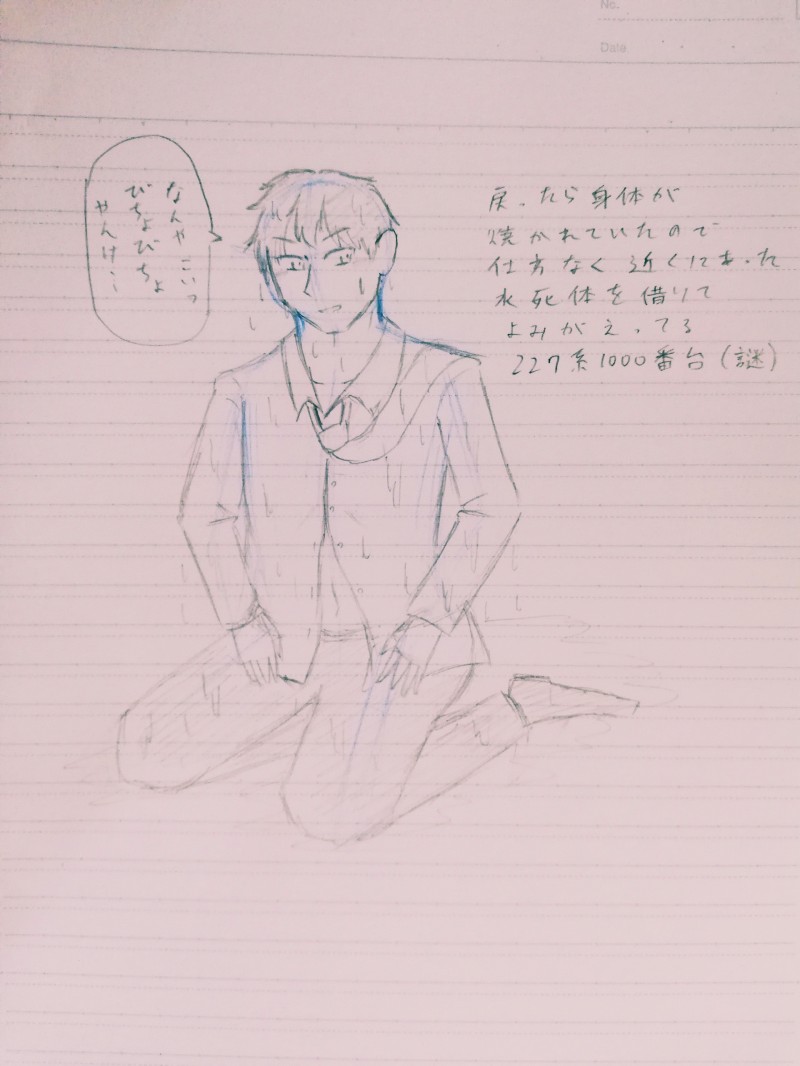 No.
Date
なんやこいつ
びちょびちょ
やんけ…
戻ったら身体が
焼かれていたので
仕方なく近くにあった
水死体を借りて
よみがえってる
227系1000番台(謎)